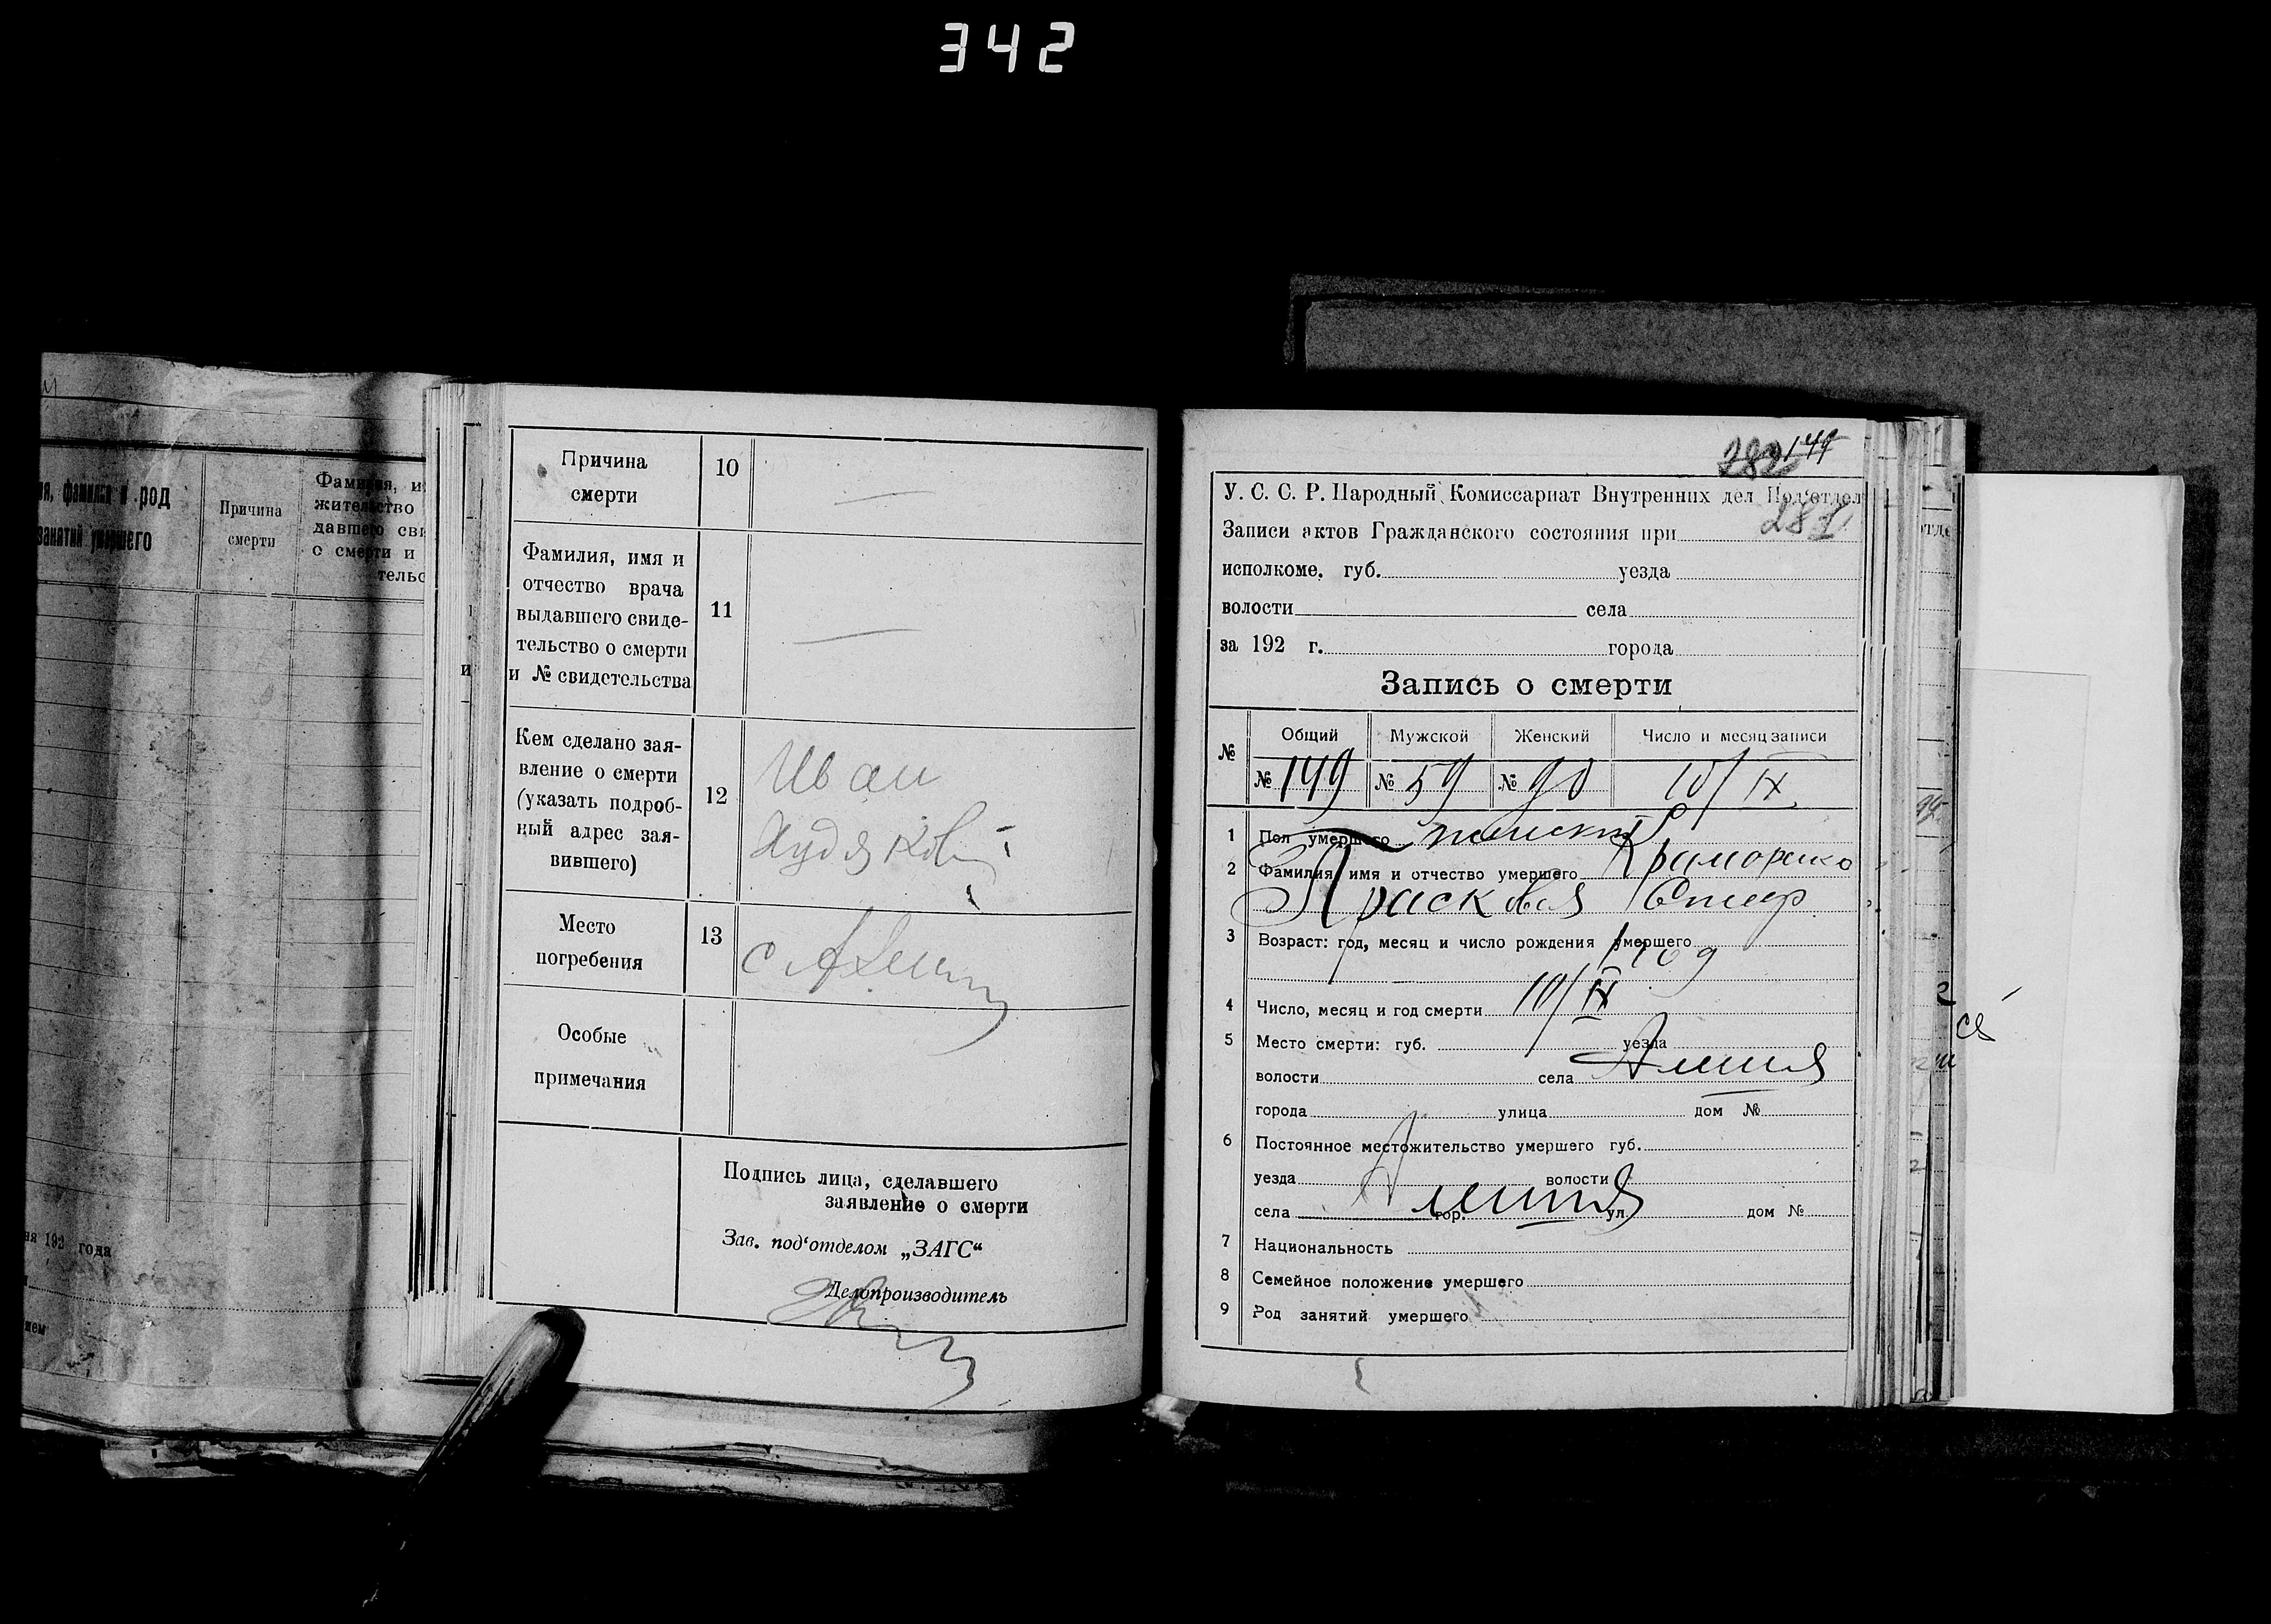 342
я, фамилия и род
занятий умершего
Причина
смерти
Фамилия, и
жительство
давшего сви
о смерти и
тельс
ня 192 года
Причина
смерти
10
—
Фамилия, имя и
отчество врача
выдавшего свиде-
тельство о смерти
и № свидетельства
11
—
Кем сделано зая-
вление о смерти
(указать подроб-
ный адрес зая-
вившего)
12
Иван
Худяков
Место
погребения
13
с
Особые
примечания
Подпись лица, сделавшего
заявление о смерти
Зав. под'отделом „ЗАГС“
Делопроизводитель
282 149
У. С. С. Р. Народный Комиссариат Внутренних дел Под'отдел
281
Записи актов Гражданского состояния при
исполкоме. губ. уезда
волости села
за 192 г. города
Запись о смерти
№ Общий Мужской Женский Число и месяц записи
№ 149 № 59 № 90 10/IX
1 Пол умершего женский
2 Фамилия, имя и отчество умершего Краморенко
Прасковия
3 Возраст: год, месяц и число рождения умершего
1909
4 Число, месяц и год смерти 10/IX
5 Место смерти: губ. уезда
волости села
города улица дом №
6 Постоянное местожительство умершего губ.
уезда волости
села гор. ул. дом №
7 Национальность
8 Семейное положение умершего
9 Род занятий умершего